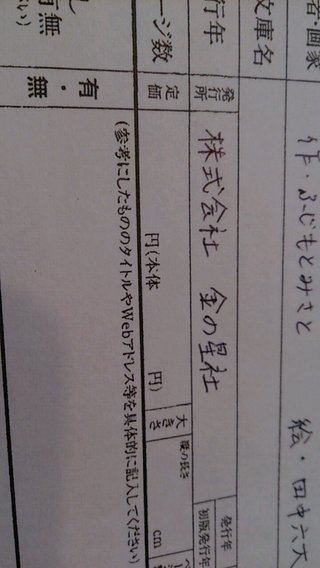 者・画家 作・ふじもとみさと 絵・田中六大
文庫名
行年 発行所 株式会社 金の星社 発行年
初版発行年
ージ数 定価 円(本体 円) 大きさ 縦の長さ cm
有・無 (参考にしたもののタイトルやWebアドレス等を具体的に記入してください)
し
有無
い)